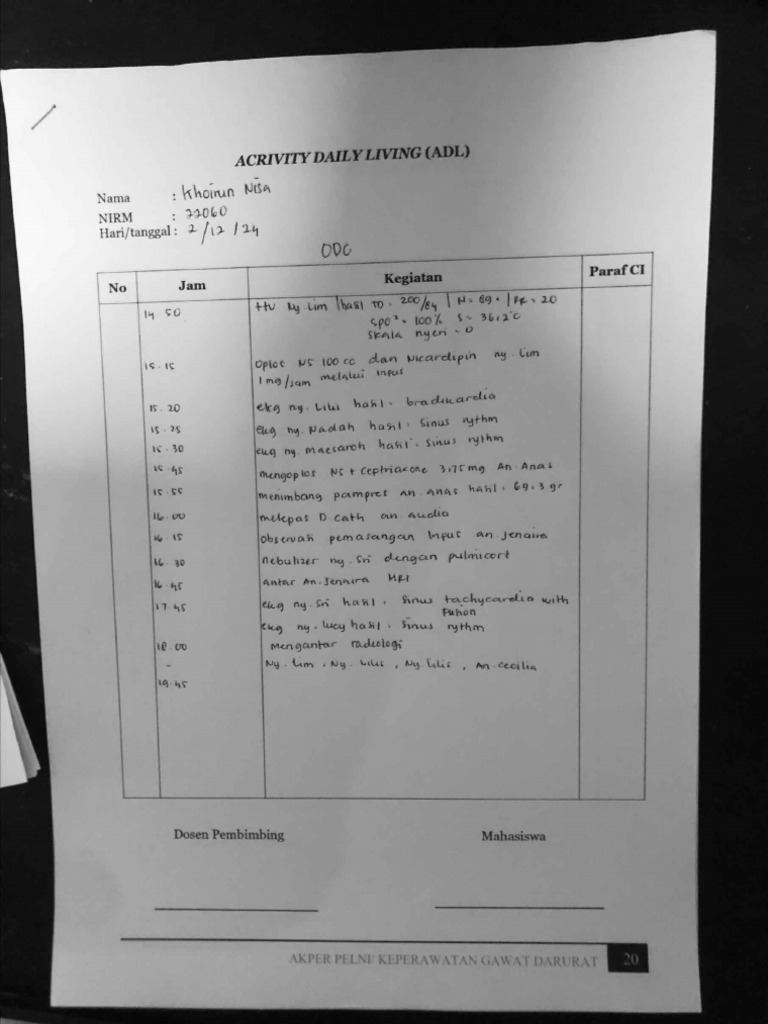 ACRIVITY DAILY LIVING (ADL)
Nama : Khoirun Nisa
NIRM : 22060
Hari/tanggal : 2/12/24
ODC
No Jam Kegiatan Paraf CI
14 50 TTV Ny. Lim | hasil TD = 200/84 | N = 89 × | RR = 20
SPO² = 100% S = 36,2°C
Skala nyeri = 0
15.15 Oplos NS 100 cc dan Nicardipin ny. Lim
1 mg/jam melalui infus
15.20 ekg ny. Lilis hasil = bradikardia
15.25 ekg ny. Nadah hasil = Sinus rythm
15.30 ekg ny. Maesaroh hasil = Sinus rythm
15.45 mengoplos NS + Ceptriaxone 375 mg An. Anas
15.55 menimbang pampres an. anas hasil = 69.3 gr
16.00 melepas D cath an. audia
16.15 observasi pemasangan Infus an. Jenaira
16.30 nebulizer ny. Sri dengan pulmicort
16.45 antar An. Jennira MRI
17.45 ekg ny. Sri hasil = Sinus tachycardia with
Fusion
ekg ny. lucy hasil = Sinus rythm
18.00 mengantar radiologi
- Ny. Lim, Ny. Lilis, Ny. Lilis, An. Cecilia
19.45
Dosen Pembimbing Mahasiswa
AKPER PELNI/ KEPERAWATAN GAWAT DARURAT 20